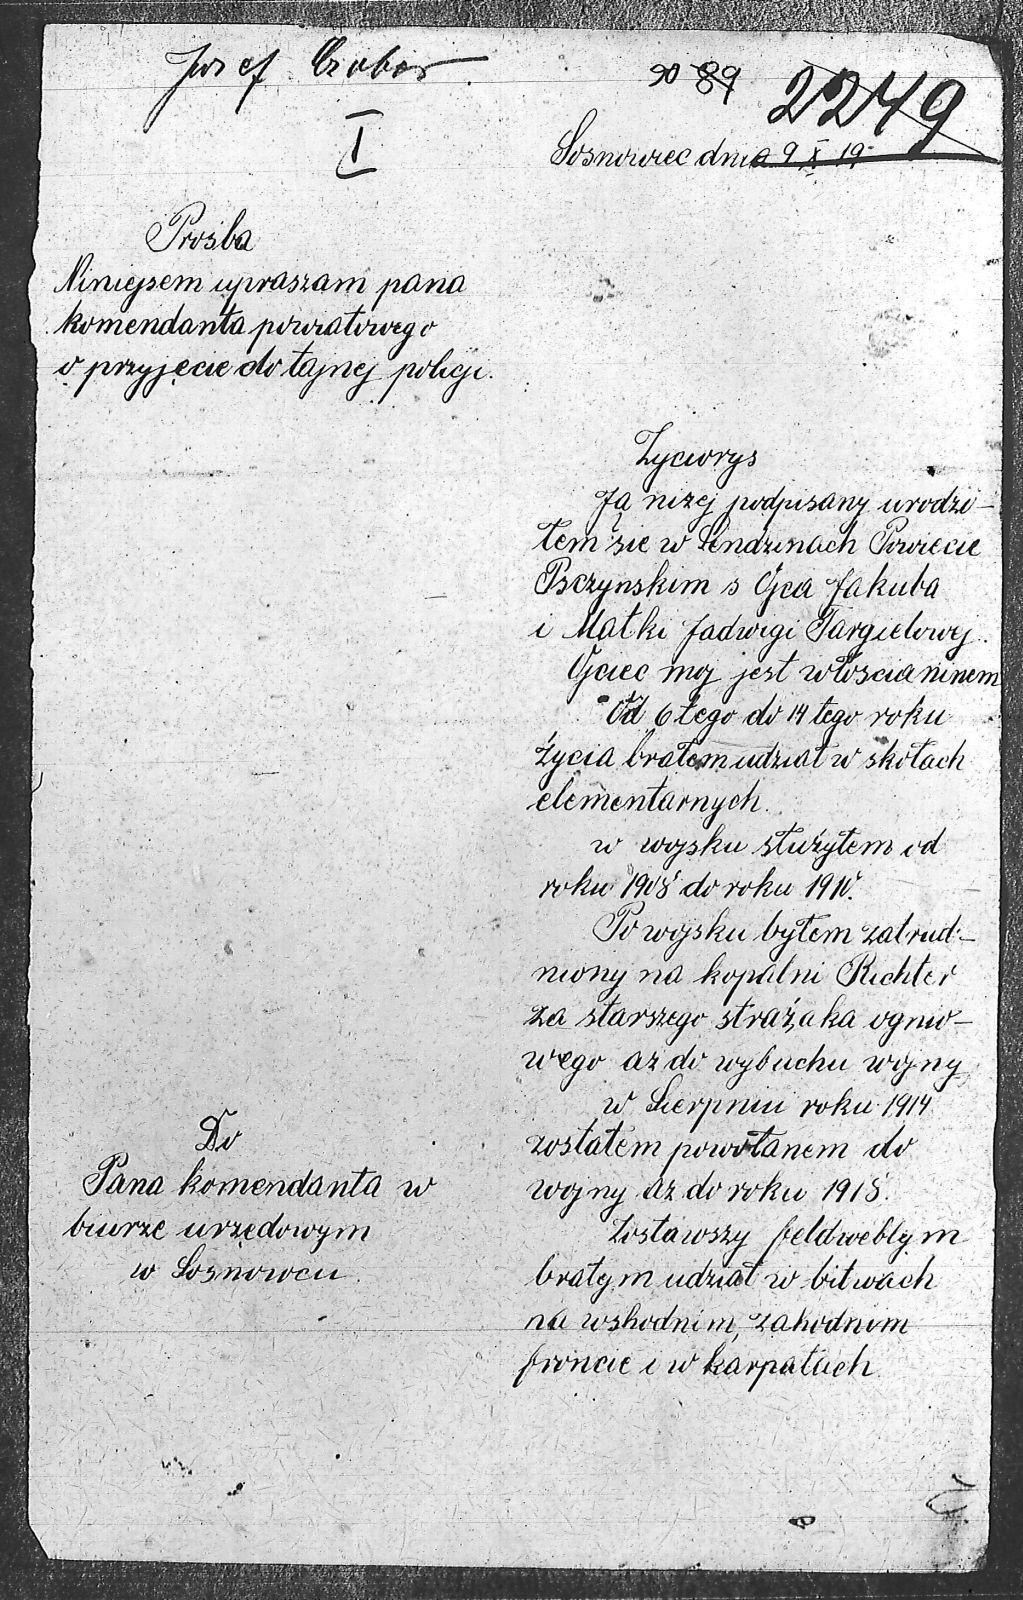 Josef Czober
90 89 2249
I
Sosnowiec dnia 9 X 19
Prośba
Niniejsem upraszam pana
komendanta powiatowego
o przyjęcie do tajnej policji.
Do
Pana komendanta w
biurze urzędowym
w Sosnowcu.
Zyciorys
Ja niżej podpisany urodzi-
łem sie w Lendzinach Powiecie
Psczynskim s Ojca Jakuba
i Matki Jadwigi Targielowej.
Ojciec moj jest włoscianinem
Od 6 tego do 14 tego roku
życia brałem udział w skołach
elementarnych.
w wojsku służyłem od
roku 1908 do roku 1910.
Po wojsku byłem zatrud-
niony na kopalni Richter
za starszego strażaka ognio-
wego aż do wybuchu wojny
w Sierpniu roku 1914
zostałem powołanem do
wojny aż do roku 1918.
Zostawszy feldweblym
brałym udział w bitwach
na wshodnim, zahodnim
froncie i w karpatach.